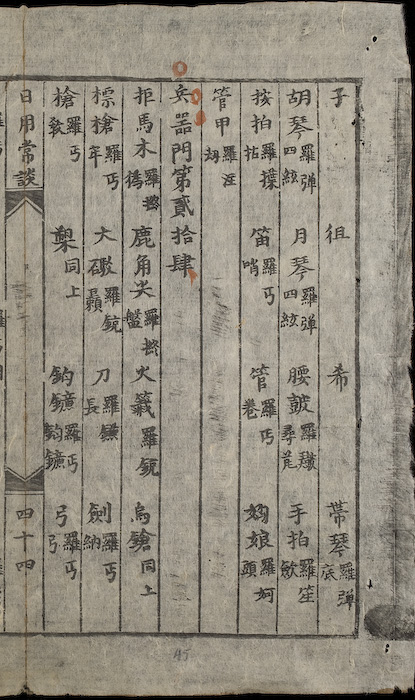 子 徂 希 琴羅彈底
胡琴羅彈四絃 月琴羅彈四絃 腰鼓羅 手拍羅笙
按拍羅揲 笛羅丐哨 管羅丐卷 娘羅妸頭
管甲羅注
兵器門第貳拾肆
拒馬木羅 鹿角尖羅 火籤羅銃 鳥鎗同上
標槍羅丐年 大礮羅銃 刀羅鐮長 劍羅丐納
槍羅丐 槊同上 鈎鑲羅丐鈎鑲 弓羅丐弓
日用常談 四十四
45